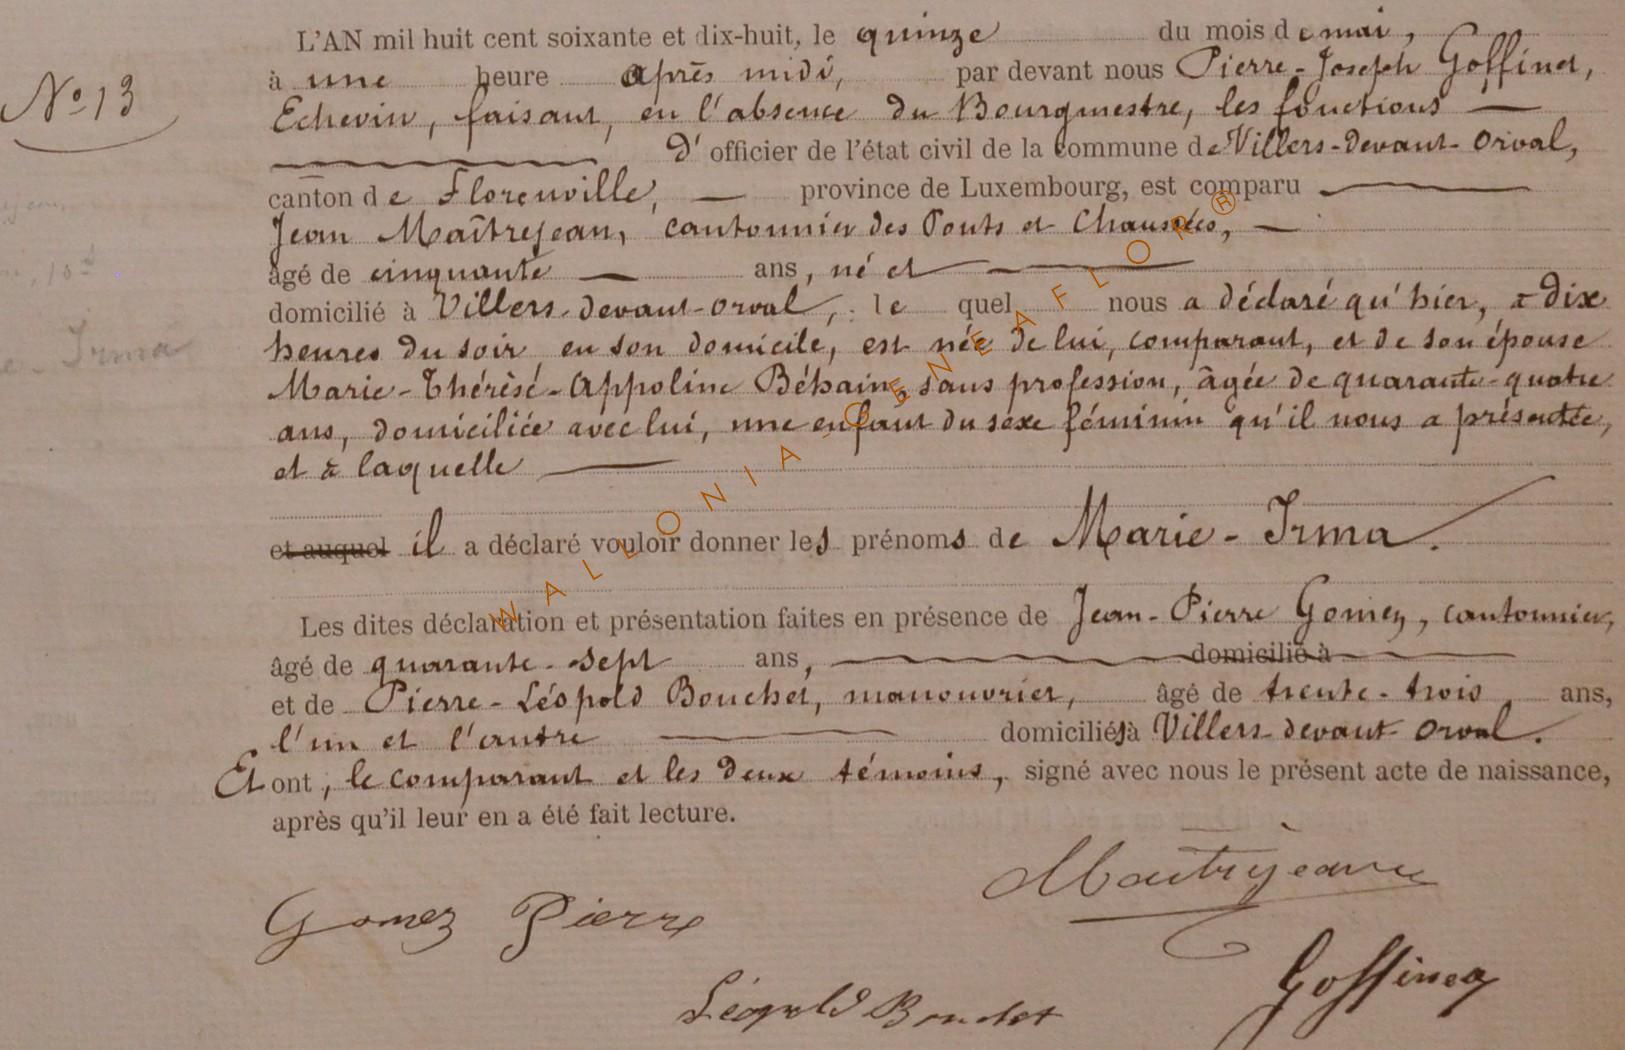 L'AN mil huit cent soixante et dix-huit, le quinze du mois de mai,
N° 13
à une heure après midi, par devant nous Pierre-Joseph Goffinet,
Echevin, faisant, en l'absence du Bourgmestre, les fonctions
d'officier de l'état civil de la commune de Villers-devant-Orval,
canton de Florenville, province de Luxembourg, est comparu
Jean Maîtrejean, cantonnier des Ponts et Chaussées,
âgé de cinquante ans, né et
domicilié à Villers-devant-Orval, lequel nous a déclaré qu'hier, à dix
heures du soir en son domicile, est née de lui, comparant, et de son épouse
Marie-Thérèse-Appoline Béhain, sans profession, âgée de quarante-quatre
ans, domiciliée avec lui, une enfant du sexe féminin qu'il nous a présentée,
et à laquelle
et auquel il a déclaré vouloir donner les prénoms de Marie-Irma.
Les dites déclaration et présentation faites en présence de Jean-Pierre Gomez, cantonnier,
âgé de quarante-sept ans, domicilié à
et de Pierre-Léopold Bouchet, manouvrier, âgé de trente-trois ans,
l'un et l'autre domiciliés à Villers-devant-Orval.
Et ont, le comparant et les deux témoins, signé avec nous le présent acte de naissance,
après qu'il leur en a été fait lecture.
Maîtrejean
Gomez Pierre
Goffinet
Léopold Bouchet
WALLONIA-GENEAFLOR®
Irma